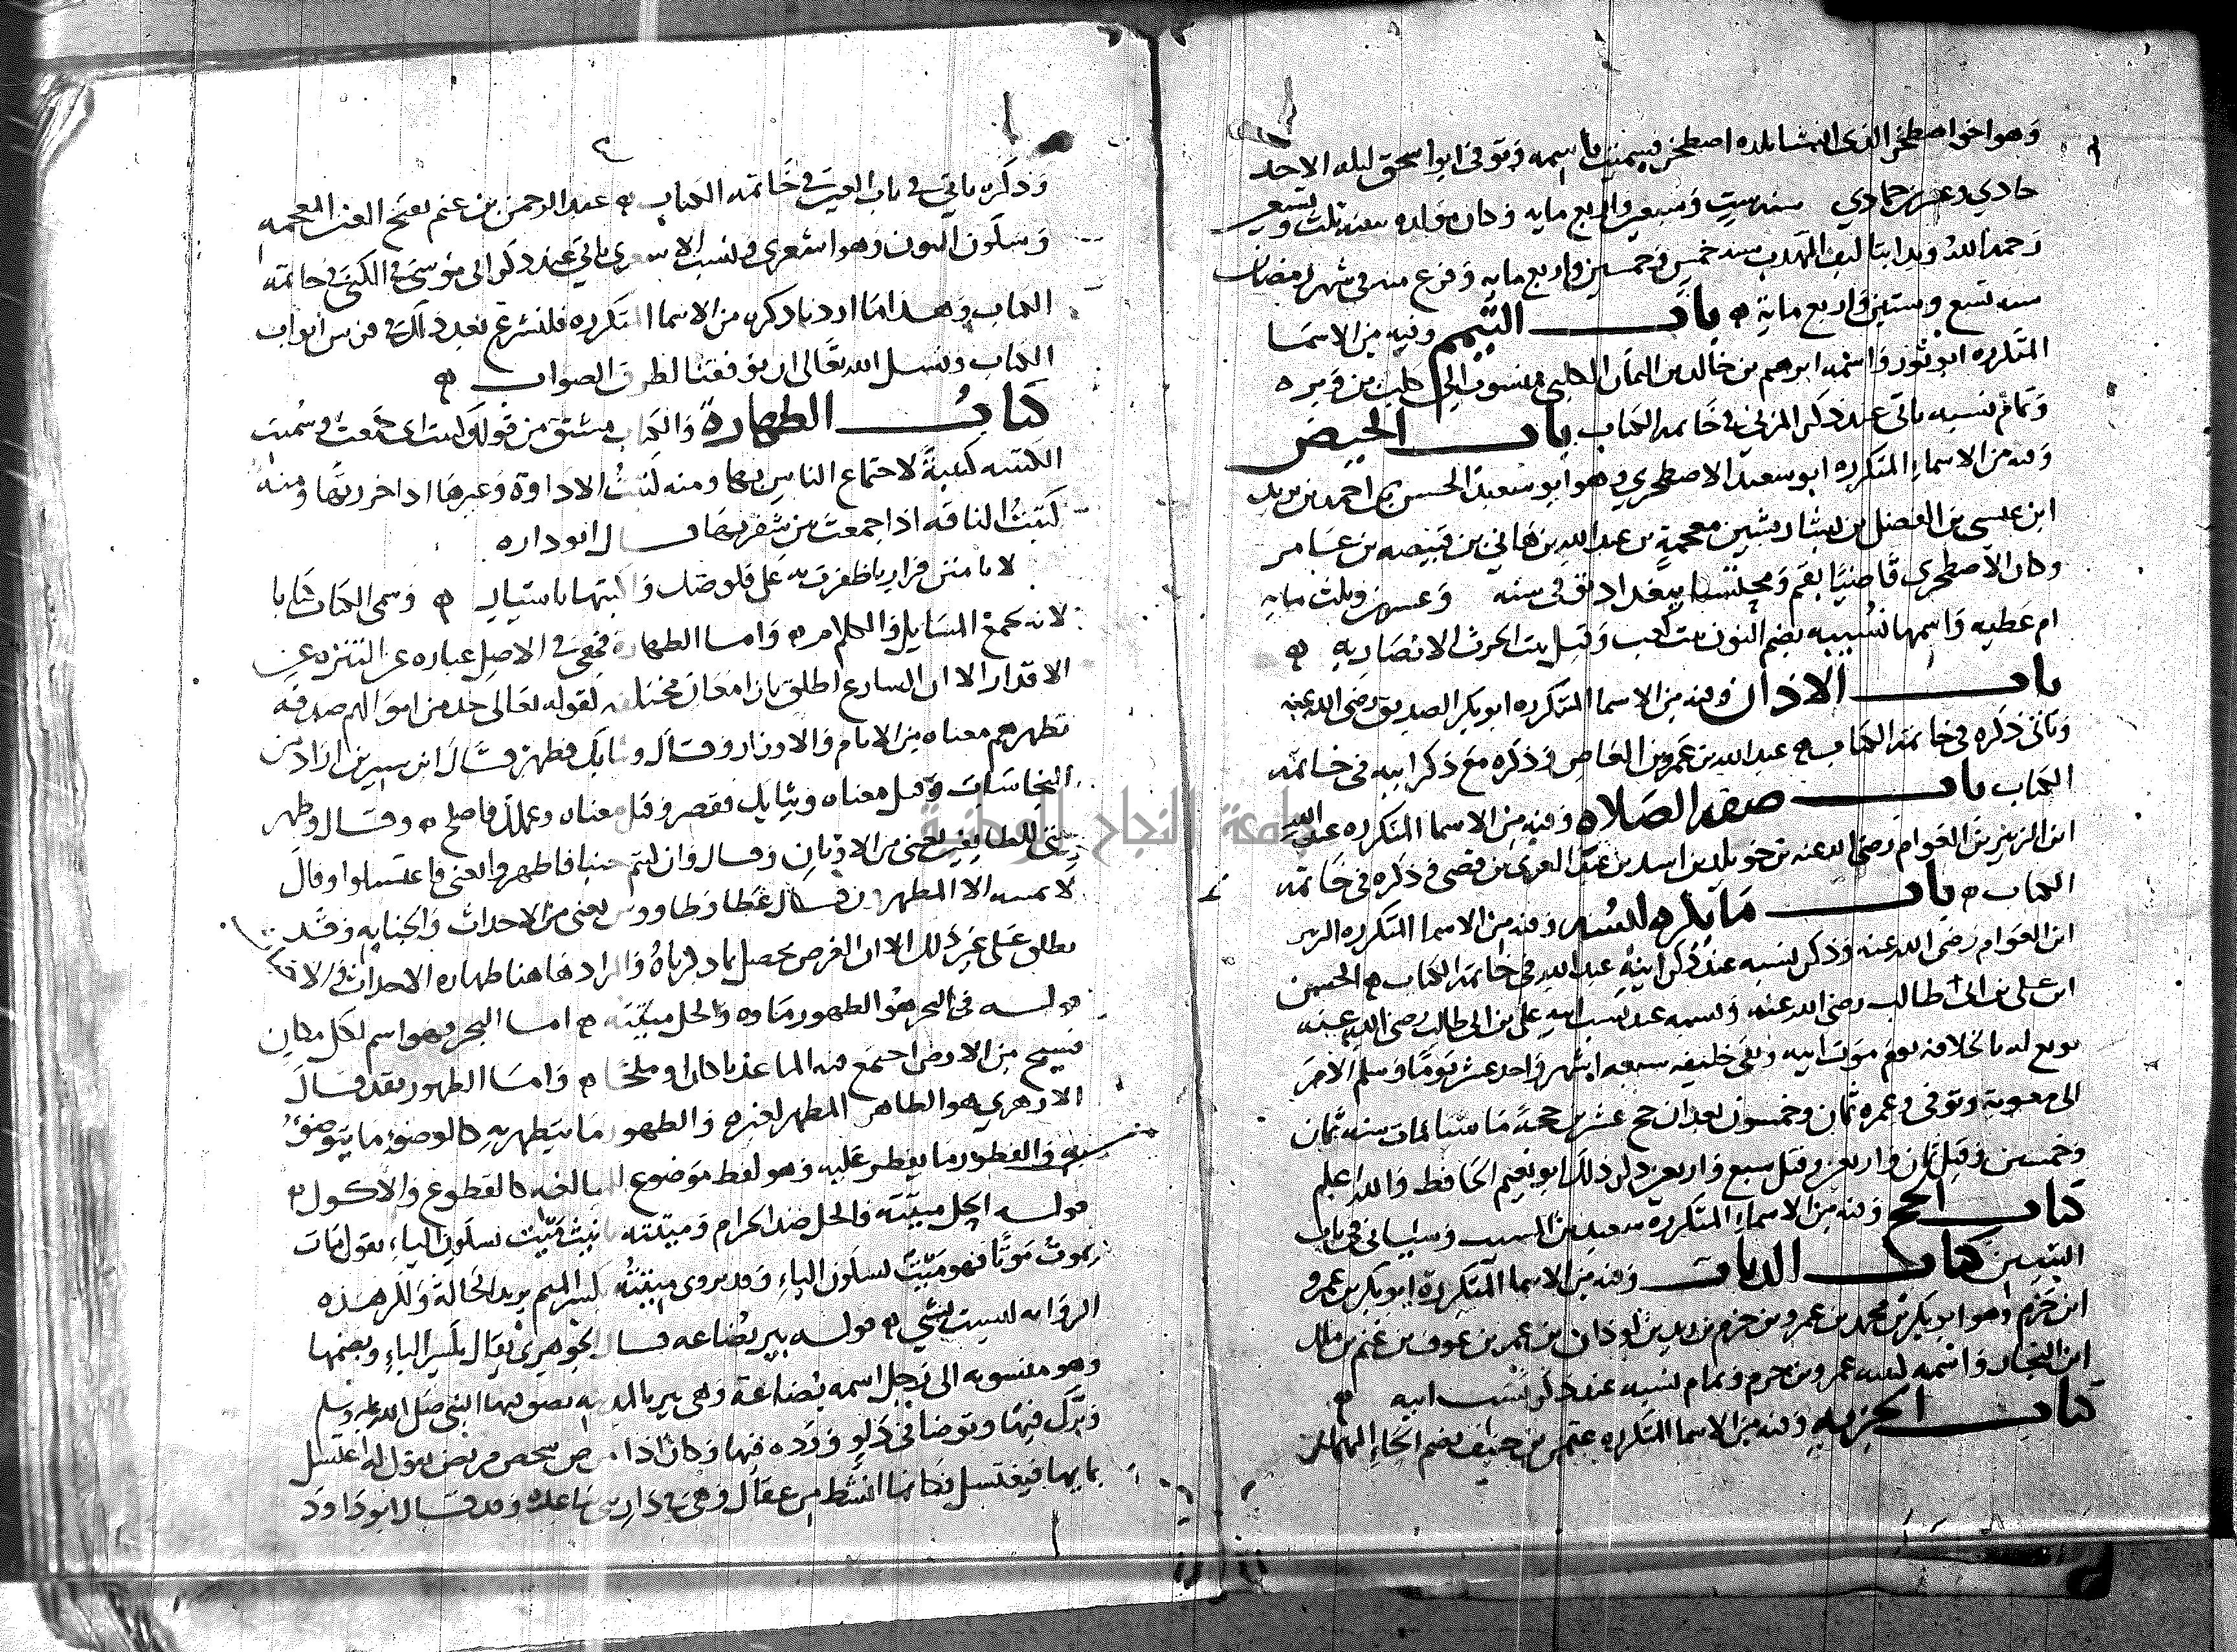 وهو اخو اصطخر الذي انشا بلده اصطخر فسميت باسمه وتوفى ابو اسحق ليله الاحد
حادي وعشرين جمادي سنه ست وسبعين واربع مايه وكان مولده سنه ثلث وتسعين
رحمه الله وبدا بتاليف المهذب سنه خمس وخمسين واربع مايه وفرغ منه في شهر رمضان
سنه تسع وستين واربع ماية باب التيمم وفيه من الاسما
المتكرره ابو ثور واسمه ابرهيم بن خالد بن اليمان الكلبي منسوب الى كلب بن وبره
وتمام نسبه ياتي عند ذكر المزني في خاتمه الكتاب باب الحيض
وفيه من الاسماء المتكرره ابو سعيد الاصطخري وهو ابو سعيد الحسن بن احمد بن يزيد
ابن عيسى بن الفضل بن بشار بشين معجمة بن عبد الله بن هاني بن قبيصه بن عامر
وكان الاصطخري قاضيا بقم ومحتسبا ببغداد توفى سنه وعشرين وثلث مايه
ام عطيه واسمها نسيبه بضم النون بنت كعب وقيل بنت الحرث الانصاريه
باب الاذان وفيه من الاسما المتكرره ابو بكر الصديق رضي الله عنه
وياتى ذكره في خاتمة الكتاب عبد الله بن عمرو بن العاص وذكره مع ذكر ابيه في خاتمه
الكتاب باب صفه الصلاه وفيه من الاسما المتكرره عبد الله
ابن الزبير بن العوام رضي الله عنه بن خويلد بن اسد بن عبد العزى بن قصي وذكره في خاتمه
الكتاب باب ما يكره لبسه وفيه من الاسما المتكرره الزبير
ابن العوام رضى الله عنه وذكر نسبه عند ذكر ابنه عبد الله في خاتمة الكتاب الحسن
ابن علي بن ابي طالب رضي الله عنه ونسبه عند نسب ابيه علي بن ابي طالب رضي الله عنه
بويع له بالخلافه يوم موت ابيه وبقى خليفه سبعه اشهر واحد عشر يوما وسلم الامر
الى معوية وتوفى وعمره ثمان وخمسون بعد ان حج عشرين حجة ماشيا مات سنه ثمان
وخمسين وقيل ثمان واربعين وقيل سبع واربعين ذكر ذلك ابو نعيم الحافظ والله اعلم
كتاب الحج وفيه من الاسماء المتكرره سعيد بن المسيب وسياتي في باب
كتاب الديات وفيه من الاسما المتكررة ابو بكر بن عمرو
ابن حزم وهو ابو بكر بن محمد بن عمرو بن حزم بن زيد بن لوذان بن عمر بن عوف بن غنم بن ملك
ابن النجار واسمه عمرو بن حزم وتمام نسبه عند ذكر نسب ابيه
كتاب الجزيه وفيه من الاسما المتكرره عثمن بن حنيف بضم الحاء المهمله
وذكره ياتي في باب في خاتمه الكتاب عبد الرحمن بن غنم بفتح الغين المعجمه
وسكون النون وهو اشعري ونسبه الاشعري ياتي عند ذكر ابي موسى في الكنى في خاتمه
الكتاب وهذا ما اردنا ذكره من الاسما المتكرره فلنشرع بعد ذلك في ابواب
الكتاب ونسل الله تعالى ان يوفقنا لطرق الصواب
كتاب الطهارة والكتاب مشتق من قولك كتبت اي جمعت وسميت
الكتيبه كتيبة لاجتماع الناس بها ومنه كتبت الاداوة وغيرها اذا خرزتها ومنه
كتبت الناقه اذا جمعت بين شفريها قال ابو داره
لا تامنن فزاريا ظفرت به على قلوصك واكتبها باسيار وسمى الكتاب كتابا
لانه يجمع المسايل والكلام واما الطهارة فهي في الاصل عباره عن التنزه عن
الاقذار الا ان الشارع اطلق بازا معان مختلفه لقوله تعالى خذ من اموالهم صدقه
تطهرهم معناه من الاثام والاوزار وقال وثيابك فطهر فقال ابن سيرين اراد من
النجاسات وقيل معناه وثيابك فقصر وقيل معناه وعملك فاصلح وقال وطهر
بيتي للطايفين يعني من الاوثان وقال وان كنتم جنبا فاطهروا يعني فاغتسلوا وقال
لا يمسه الا المطهرون قال عطا وطاووس يعني من الاحداث والجنابه وقد
يطلق على غير ذلك الا ان الغرض يحصل بما ذكرناه والمراد هاهنا طهاره الاحداث
قوله في البحر هو الطهور ماوه والحل ميتته اما البحر وهو اسم لكل مكان
فسيح من الارض اجتمع فيه الما عذبا كان او ملحا واما الطهور فقد قال
الازهري هو الطاهر المطهر لغيره والطهور ما يتطهر به كالوضوء ما يتوضؤ
به والفطور ما يفطر عليه وهو لفظ موضوع للمبالغه كالقطوع والاكول
قوله الحل ميتته والحل ضد الحرام وميتته تانيث ميت بسكون الياء يقول مات
يموت موتا فهو ميت بسكون الياء وقد يروى ميتته بكسر الميم يريد الحالة ولكن هذه
الروايه ليست بشي قوله بير بضاعه قال الجوهري يقال بكسر الباء وبضمها
وهو منسوبه الى رجل اسمه بضاعة وهي بير بالمدينه بصق فيها النبي صلى الله عليه وسلم
وبرك فيها وتوضا في دلو ورده فيها وكان اذا مرض شخص مريض يقول له اغتسل
بمايها فيغتسل فكانما انشط من عقال وهي في دار بني ساعده وقد قال ابو داود
جامعة النجاح الوطنية